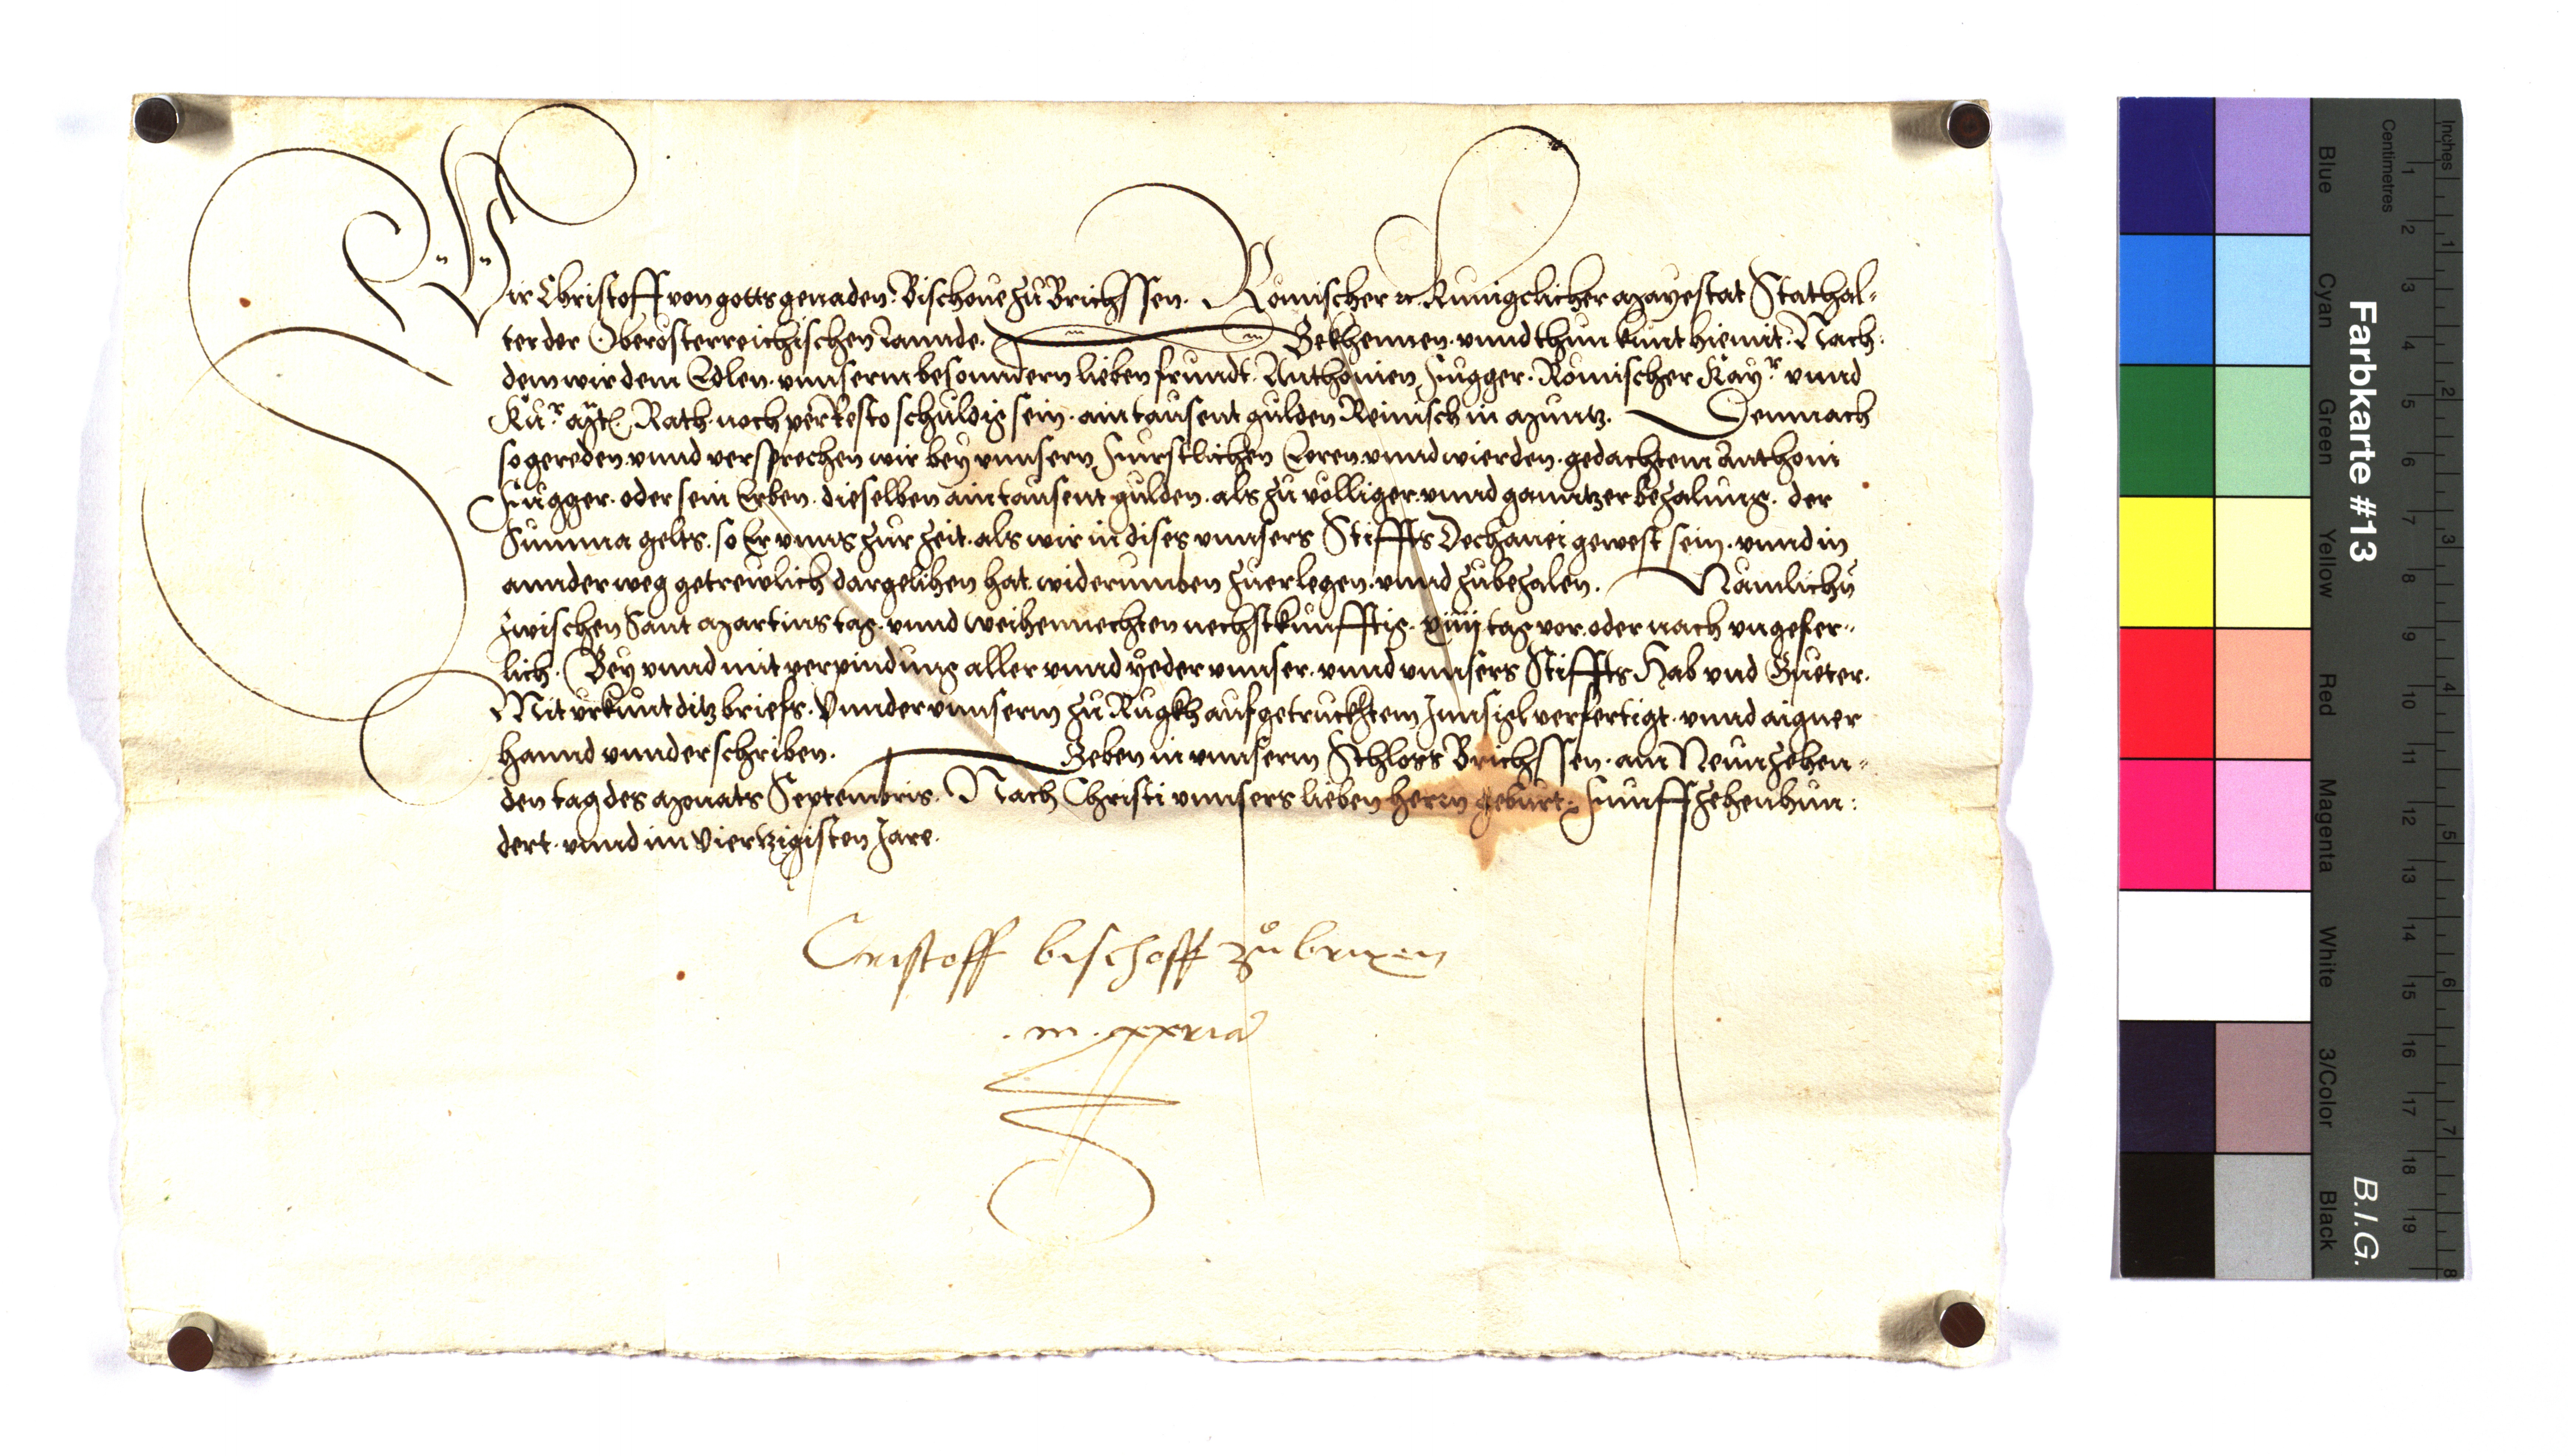 Wir Christoff von gotts genaden. Bischoue zu Brichssen. Römischer ꝛc. Kunigclicher Mayestat Stathal-
ter der Oberosterreichischen Lannde. Bekhennen. vnnd thun kunt hiemit. Nach-
dem wir dem Edlen. vnnserm besonndern lieben frundt. Anthonien Fugger. Römischer Kayr. vnnd
Kur. Mt. Rath. noch per Resto schuldig sein. ain tausent gulden Reinisch in Muntz. Demnach
so gereden vnnd versprechen wir bey vnnsern Furstlichen Eeren. vnnd wierden. gedachtem Anthoni
Fugger. oder sein Erben. dieselben ain tausent gulden. als zu völliger. vnnd ganntzer bezalung. der
Summa gelts. so Er vnns zur zeit. als wir in dises vnnsers Stiffts Dechanei gewest sein. vnnd in
annder weg getrewlich dargelihen hat. widerumben zuerlegen. vnnd zubezalen. Nämlichn
zwischen Sant Martins tag. vnnd weihennechten nechstkunfftig. xiiij tag vor. oder nach vngefer-
lich. Bey vnnd mit verpindung aller vnnd yeder vnnser. vnnd vnnsers Stiffts Hab vnd Gueter.
Mit vrkunt ditz briefs. Vnnder vnnserm zu Rugkh aufgetrucktem Innsigl verfertigt. vnnd aigner
hannd vnnderschriben. Geben in vnnserm Schloss Brichssen. am Neunzehen-
den tag des Monats Septembris. Nach Christi vnnsers lieben herrn geburt. Funffzehenhun-
dert. vnnd im Viertzigisten Jare.
Cristoff bischoff zů brixen
. m. ppria
Farbkarte #13
B.I.G.
Inches
Centimetres
1 2 3 4 5 6 7 8 9 10 11 12 13 14 15 16 17 18 19
1 2 3 4 5 6 7 8
Blue
Cyan
Green
Yellow
Red
Magenta
White
3/Color
Black